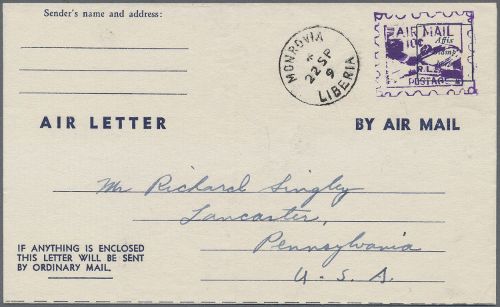 Sender's name and address:
MONROVIA
22 SP
9
LIBERIA
AIR MAIL
10¢
Affix
R.L.
POSTAGE
AIR LETTER
BY AIR MAIL
Mr Richard Singley
Lancaster,
Pennsylvania
U. S. A.
IF ANYTHING IS ENCLOSED
THIS LETTER WILL BE SENT
BY ORDINARY MAIL.